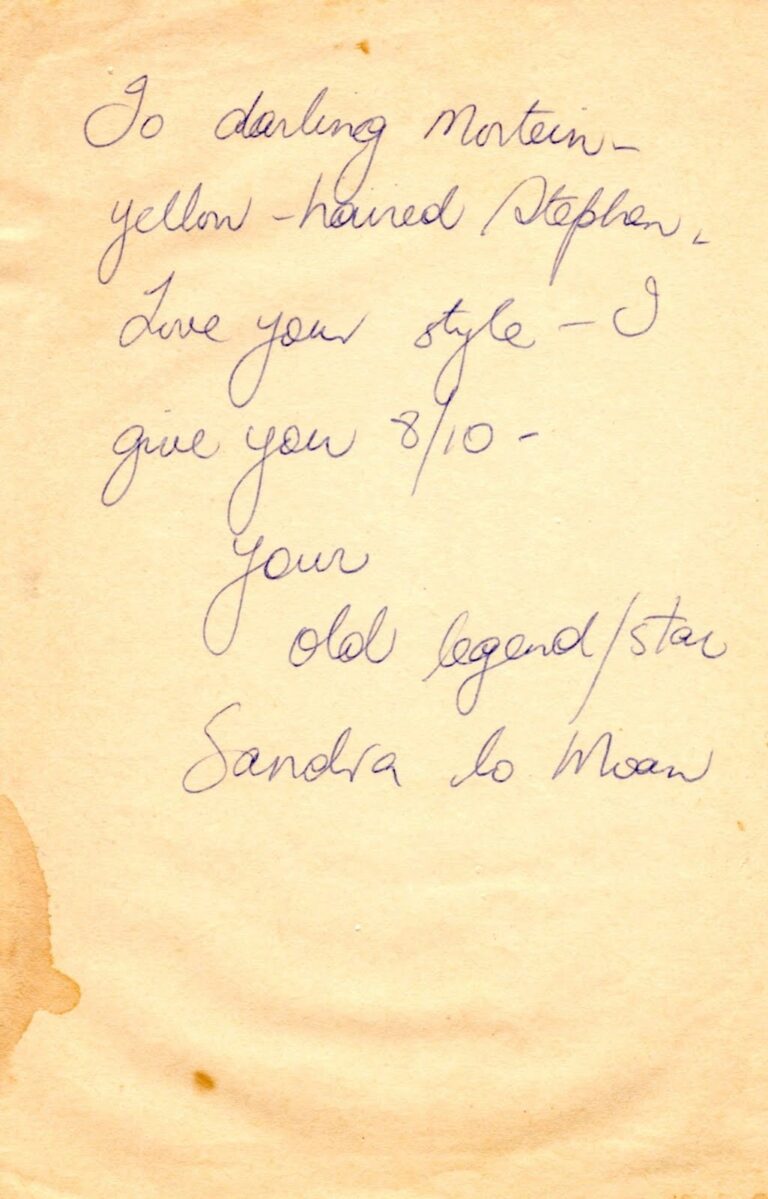 To darling Mortein-
yellow-haired Stephen,
Love your style - I
give you 8/10 -
your
old legend/star
Sandra lo Moan